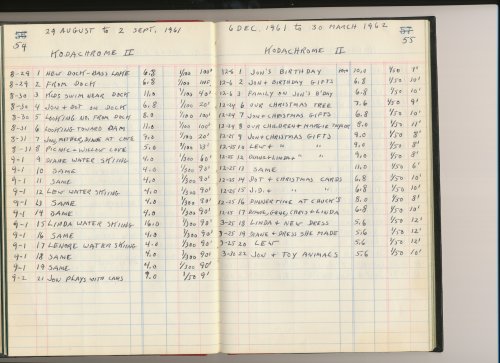 56 29 AUGUST to 2 SEPT, 1961
54
KODACHROME II
8-29 1 NEW DOCK-BASS LAKE 6.8 1/100 100'
8-29 2 FROM DOCK 6.8 1/100 100'
8-30 3 KIDS SWIM NEAR DOCK 11.0 1/100 40'
8-30 4 JON & DOT ON DOCK 6.8 1/100 20'
8-30 5 LOOKING NO. FROM DOCK 8.0 1/100 100'
8-31 6 LOOKING TOWARD DAM 11.0 1/100 100'
8-31 7 JON, MOTHER, DIANE AT COVE 9.0 1/100 20'
8-31 8 PICNIC-WILLOW COVE 5.0 1/100 15'
9-1 9 DIANE WATER SKIING 4.0 1/300 60'
9-1 10 SAME 4.0 1/300 90'
9-1 11 SAME 4.0 1/300 90'
9-1 12 LEW WATER SKIING 4.0 1/300 90'
9-1 13 SAME 4.0 1/300 90'
9-1 14 SAME 4.0 1/300 90'
9-1 15 LINDA WATER SKIING 6.0 1/300 90'
9-1 16 SAME 4.0 1/300 90'
9-1 17 LENORE WATER SKIING 4.0 1/300 90'
9-1 18 SAME 4.0 1/300 90'
9-1 19 SAME 4.0 1/300 90'
9-2 21 JON PLAYS WITH CARS 9.0 1/50 9'
6 DEC, 1961 to 30 MARCH 1962 57
55
KODACHROME II
12-6 1 JON'S BIRTHDAY 10.0 1/50 9'
12-6 2 JON & BIRTHDAY GIFTS 6.8 1/50 10'
12-6 3 FAMILY ON JON'S B'DAY 6.3 1/50 10'
12-24 6 OUR CHRISTMAS TREE 7.6 1/50 9'
12-24 7 JON & CHRISTMAS GIFTS 6.8 1/50 10'
12-24 8 OUR CHILDREN & MARGIE 8.0 1/50 11'
12-25 9 JON & CHRISTMAS GIFTS 9.0 1/50 8'
12-25 10 LEW & " " 9.0 1/50 8'
12-25 12 " " 8.0 1/50 9'
12-25 13 SAME 11.0 1/50 6'
12-25 14 DOT & CHRISTMAS CARDS 6.8 1/50 10'
12-25 15 J.D. & " " 6.8 1/50 10'
12-25 16 DINNER TIME AT CHUCK'S 8.0 1/50 8'
12-25 17 GENE, CHRIS & LINDA 6.8 1/50 10'
3-25 18 LINDA & NEW DRESS 5.6 1/50 12'
3-25 19 DIANE & DRESS SHE MADE 5.6 1/50 12'
3-25 20 LEW 5.6 1/50 12'
3-30 22 JON & TOY ANIMALS 5.6 1/50 10'